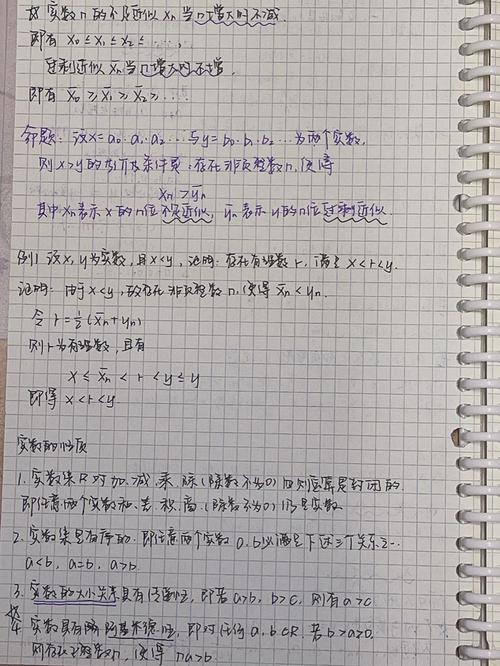 故 实数 n 的不足近似 xn 当 n 增大时不减.
即有 x₀ ≤ x₁ ≤ x₂ ≤ ⋯,
过剩近似 x̄n 当 n 增大时不增,
即有 x̄₀ ≥ x̄₁ ≥ x̄₂ ≥ ⋯.
命题: 设 x = a₀.a₁a₂⋯ 与 y = b₀.b₁b₂⋯ 为两个实数,
则 x>y 的等价条件是: 存在非负整数 n, 使得
xn > ȳn
其中 xn 表示 x 的 n 位不足近似, ȳn 表示 y 的 n 位过剩近似.
例1 设 x, y 为实数, 且 x<y, 证明: 存在有理数 r, 满足 x<r<y.
证明: 由于 x<y, 故存在非负整数 n, 使得 x̄n < yn.
令 r = ½(x̄n + yn)
则 r 为有理数, 且有
x ≤ x̄n < r < y ≤ y
即得 x < r < y.
实数的性质
1. 实数集 R 对加、减、乘、除 (除数不为0) 四则运算是封闭的.
即任意两个实数和、差、积、商 (除数不为0) 仍是实数.
2. 实数集是有序的. 即任意两个实数 a, b 必满足下述三个关系之一.
a<b, a=b, a>b.
3. 实数的大小关系具有传递性, 即若 a>b, b>c, 则有 a>c
4. 实数具有阿基米德性, 即对任何 a, b ∈R, 若 b>a>0,
则存在正整数 n, 使得 na>b.